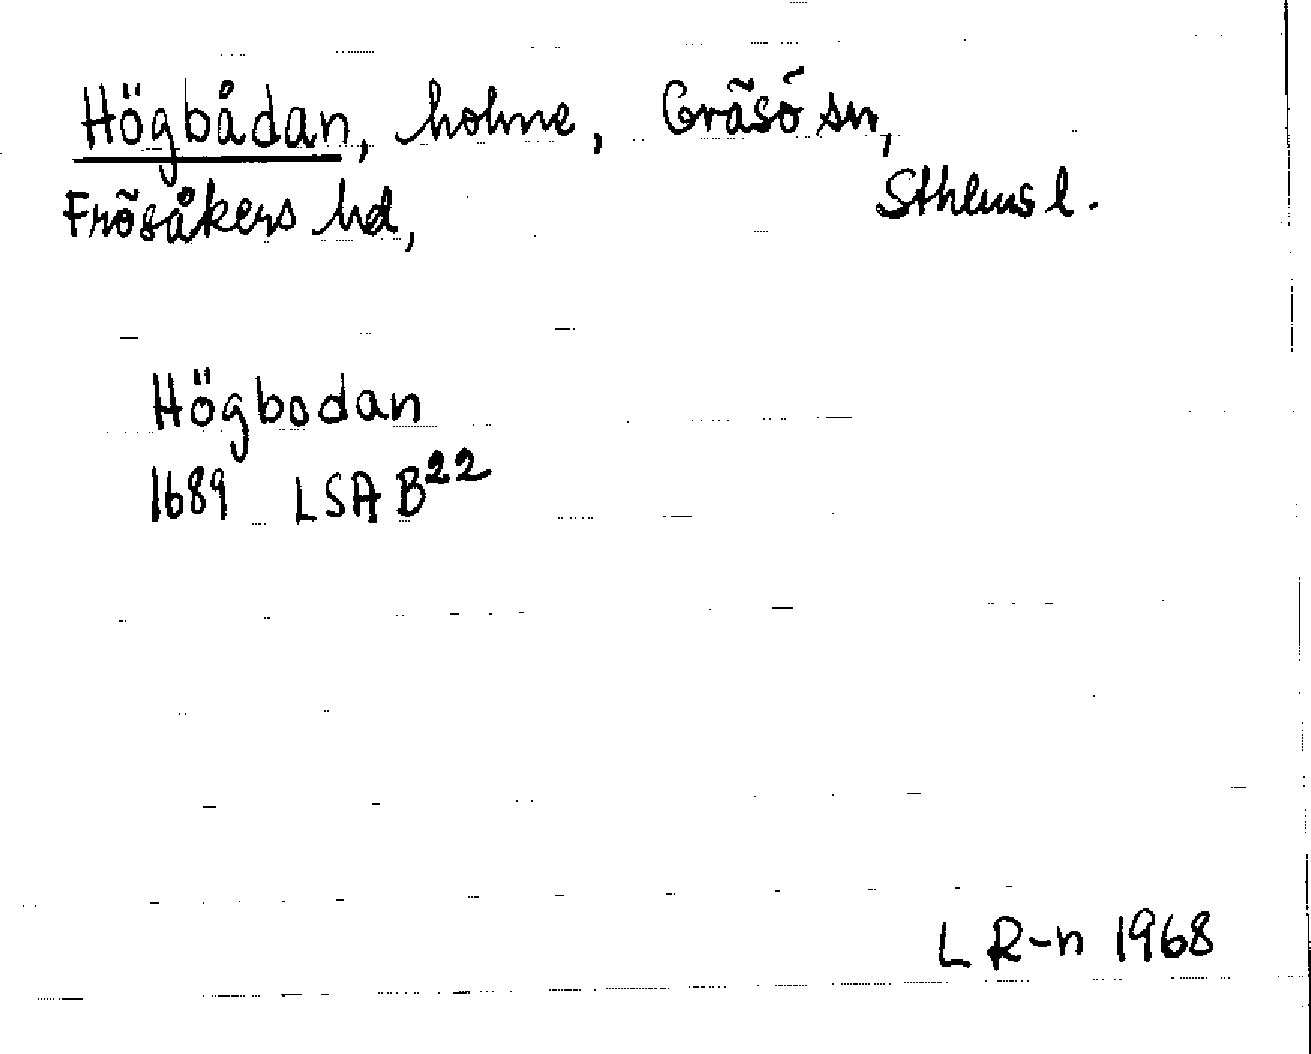 Högbådan, holme, Gräsö sn,
Frösåkers hd, Sthlms l.
Högbodan
1689 LSA B²²
L R-n 1968